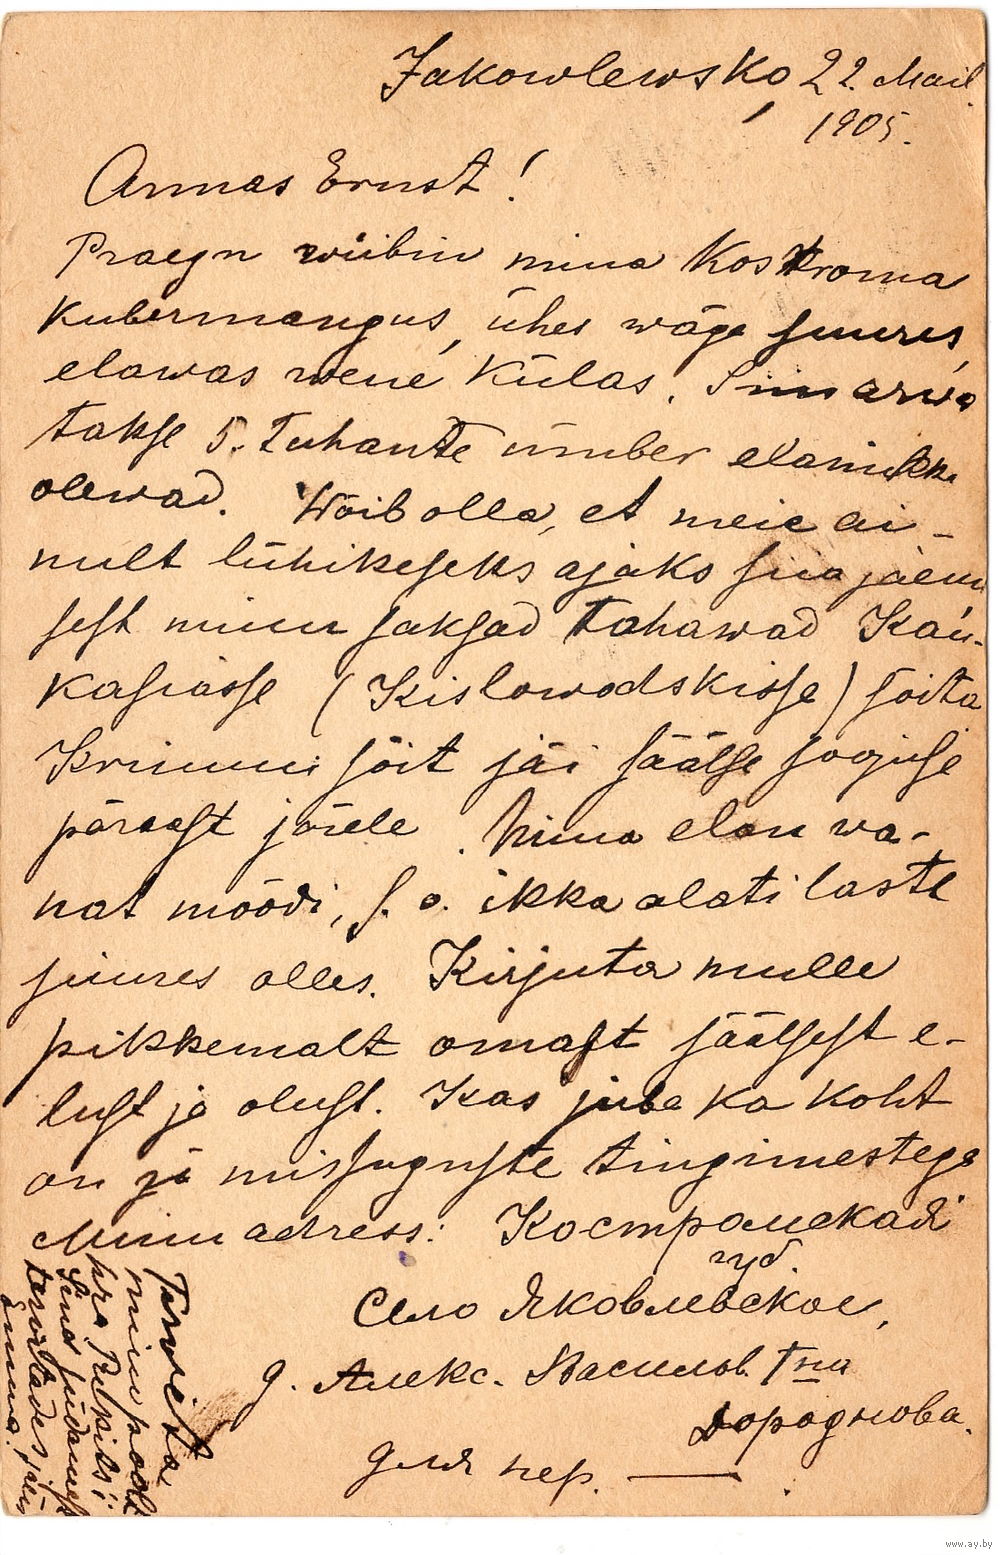 Jakowlewsko 22. Mail
1905.
Armas Ernst!
Praegu wiibin mina Kostroma
kubermangus, ühes wäga suures,
elawas wene külas. Siin arwa
takse 5. Tuhante ümber elanikka
olewad. Wõib olla, et meie ai-
nult lühikeseks ajaks siia jäeme
sest minu saksad tahawad Kau-
kasiasse (Kislowodskisse) sõita
Krimmi sõit jäi säälse sogase
pärast järele. Mina elan wa-
nat mõõdi, s. o. ikka alati laste
juures olles. Kirjuta mulle
pikkemalt omast säälsest e-
lust ja olust. Kas juba ka koht
on ja missuguste tingimestega
Minu adress: Костромская
губ.
Село Яковлевское,
д. Алекс. Васильев. Гна
Дороднова.
для пер. —
Terwita
minu poolt
hra
Sind südamest
terwitades jään